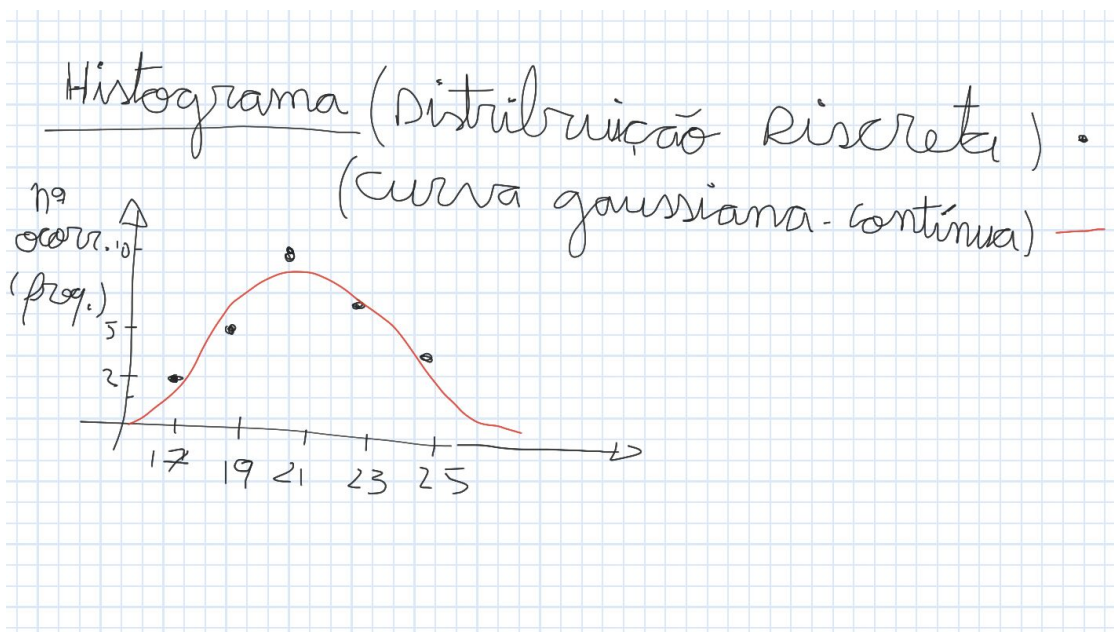 Histograma (Distribuição Discreta) •
(curva gaussiana - contínua) —
nº
ocorr.
(freq.)
10
5
2
17 19 21 23 25